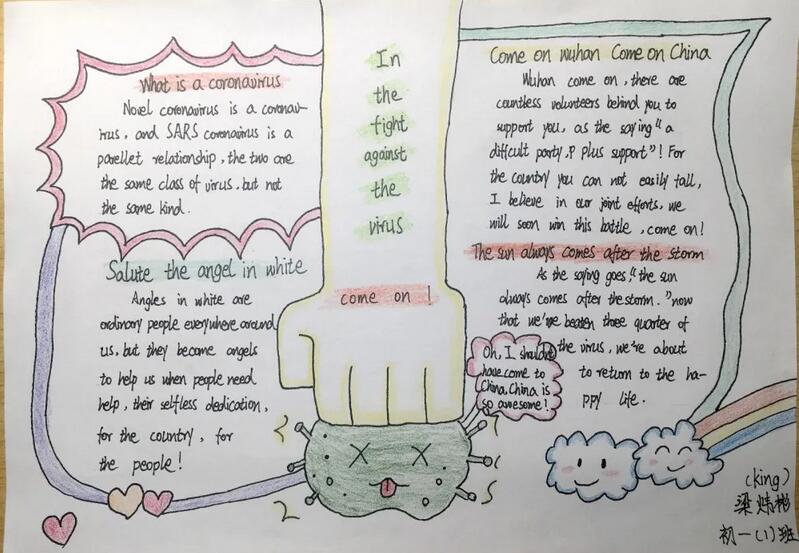 What is a coronavirus
Novel coronavirus is a coronav-
irus, and SARS coronavirus is a
parellet relationship, the two are
the same class of virus, but not
the same kind.
Salute the angel in white
Angles in white are
ordinary people everywhere around
us, but they become angels
to help us when people need
help, their selfless dedication,
for the country, for
the people!
In
the
fight
against
the
virus
come on!
Come on wuhan Come on China
Wuhan come on, there are
countless volunteers behind you to
support you, as the saying "a
difficult party, P Plus support"! For
the country you can not easily fall,
I believe in our joint efforts, we
will soon win this battle, come on!
The sun always comes after the storm
As the saying goes, "the sun
always comes after the storm." now
that we've beaten three quarter of
the virus, we're about
to return to the ha-
ppy life.
Oh, I shouldn't
have come to
China, China is
so awesome!
(king)
梁炜彬
初一(1)班